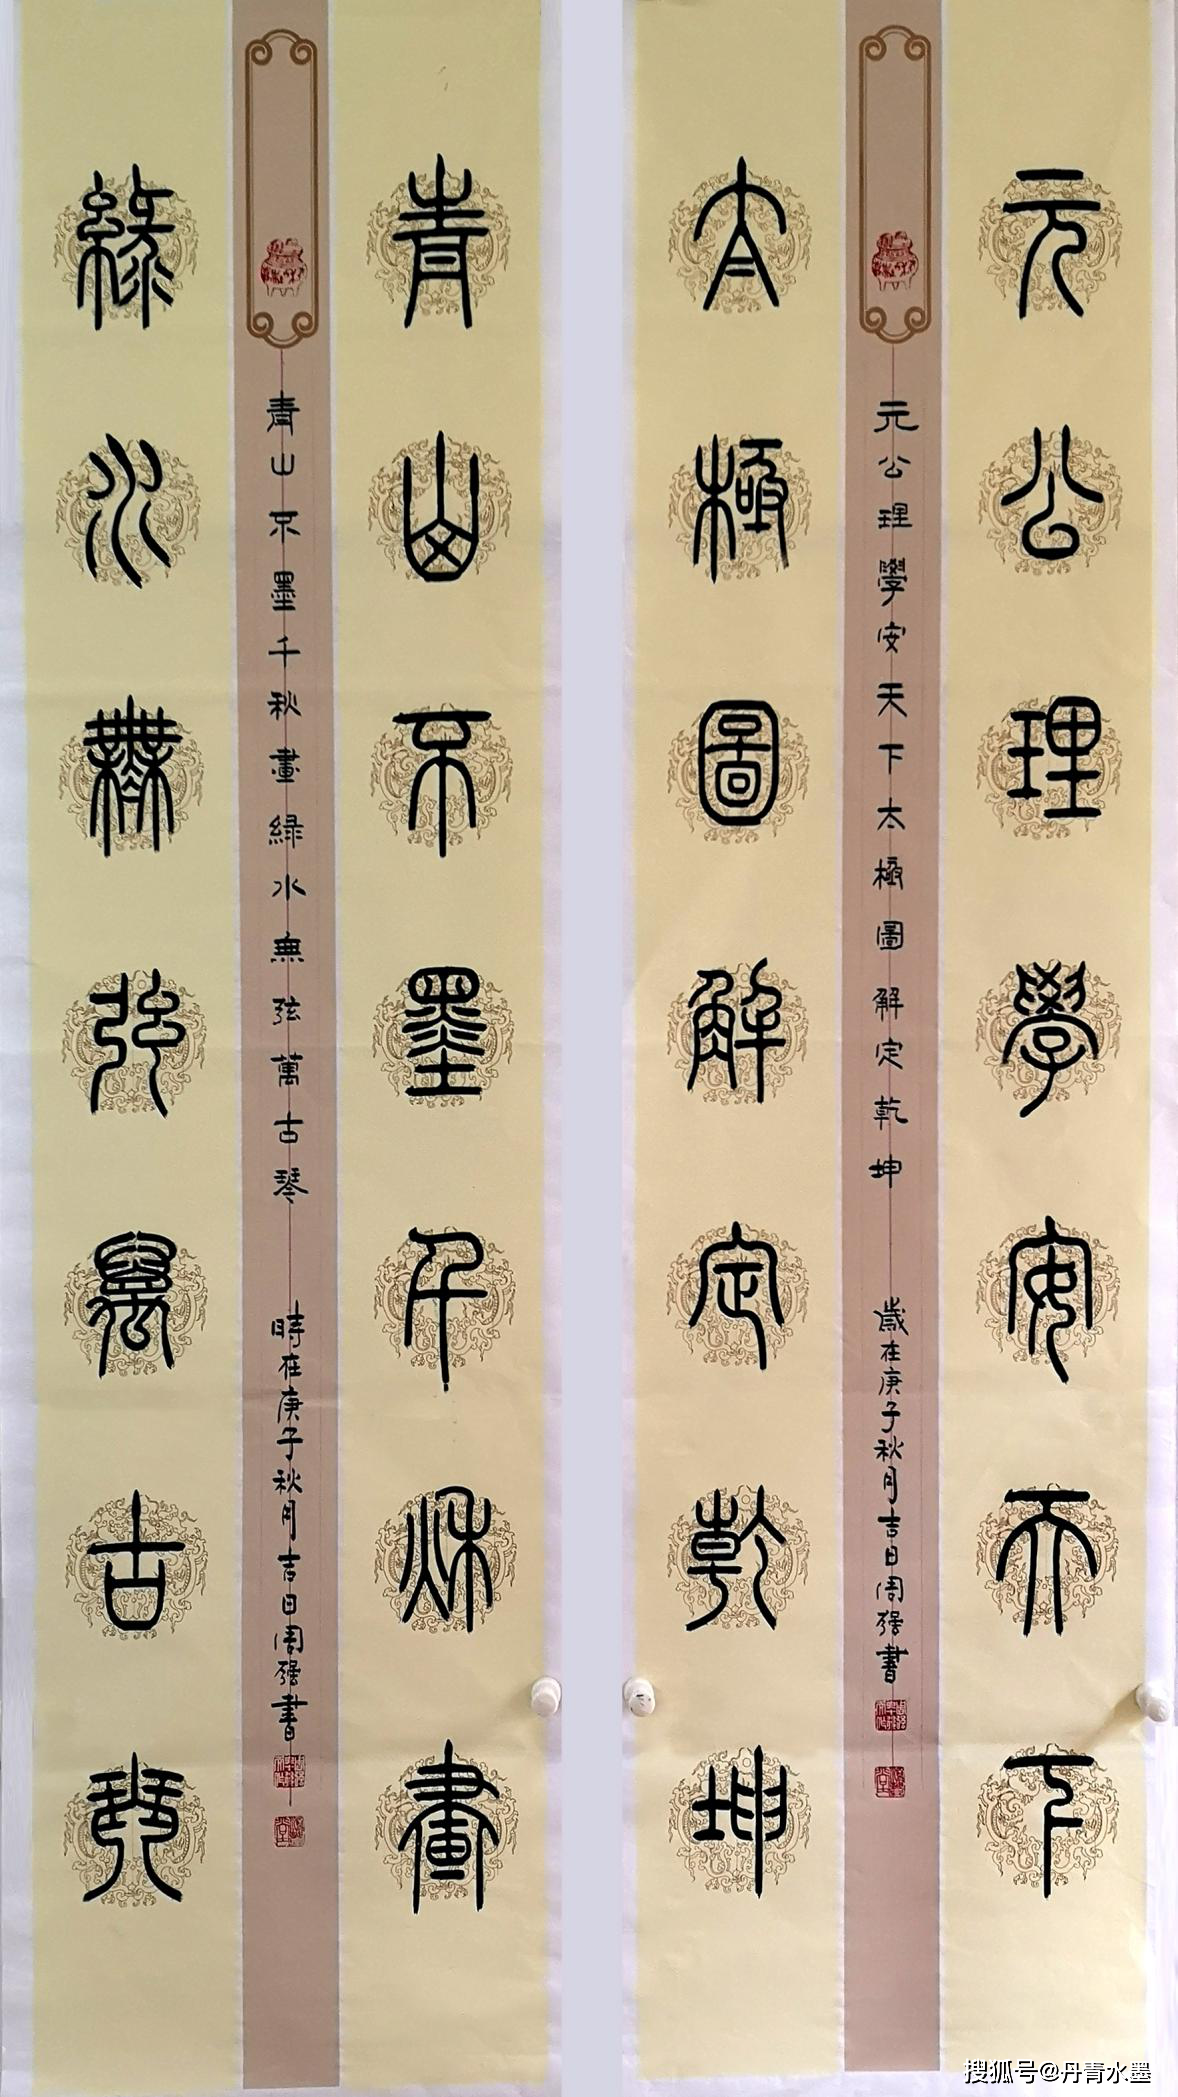 元公理學安天下
元公理學安天下太極圖解定乾坤
歲在庚子秋月吉日周强書
太極圖解定乾坤
青山不墨千秋畫
青山不墨千秋畫綠水無弦萬古琴
時在庚子秋月吉日周强書
綠水無弦萬古琴
搜狐号@丹青水墨